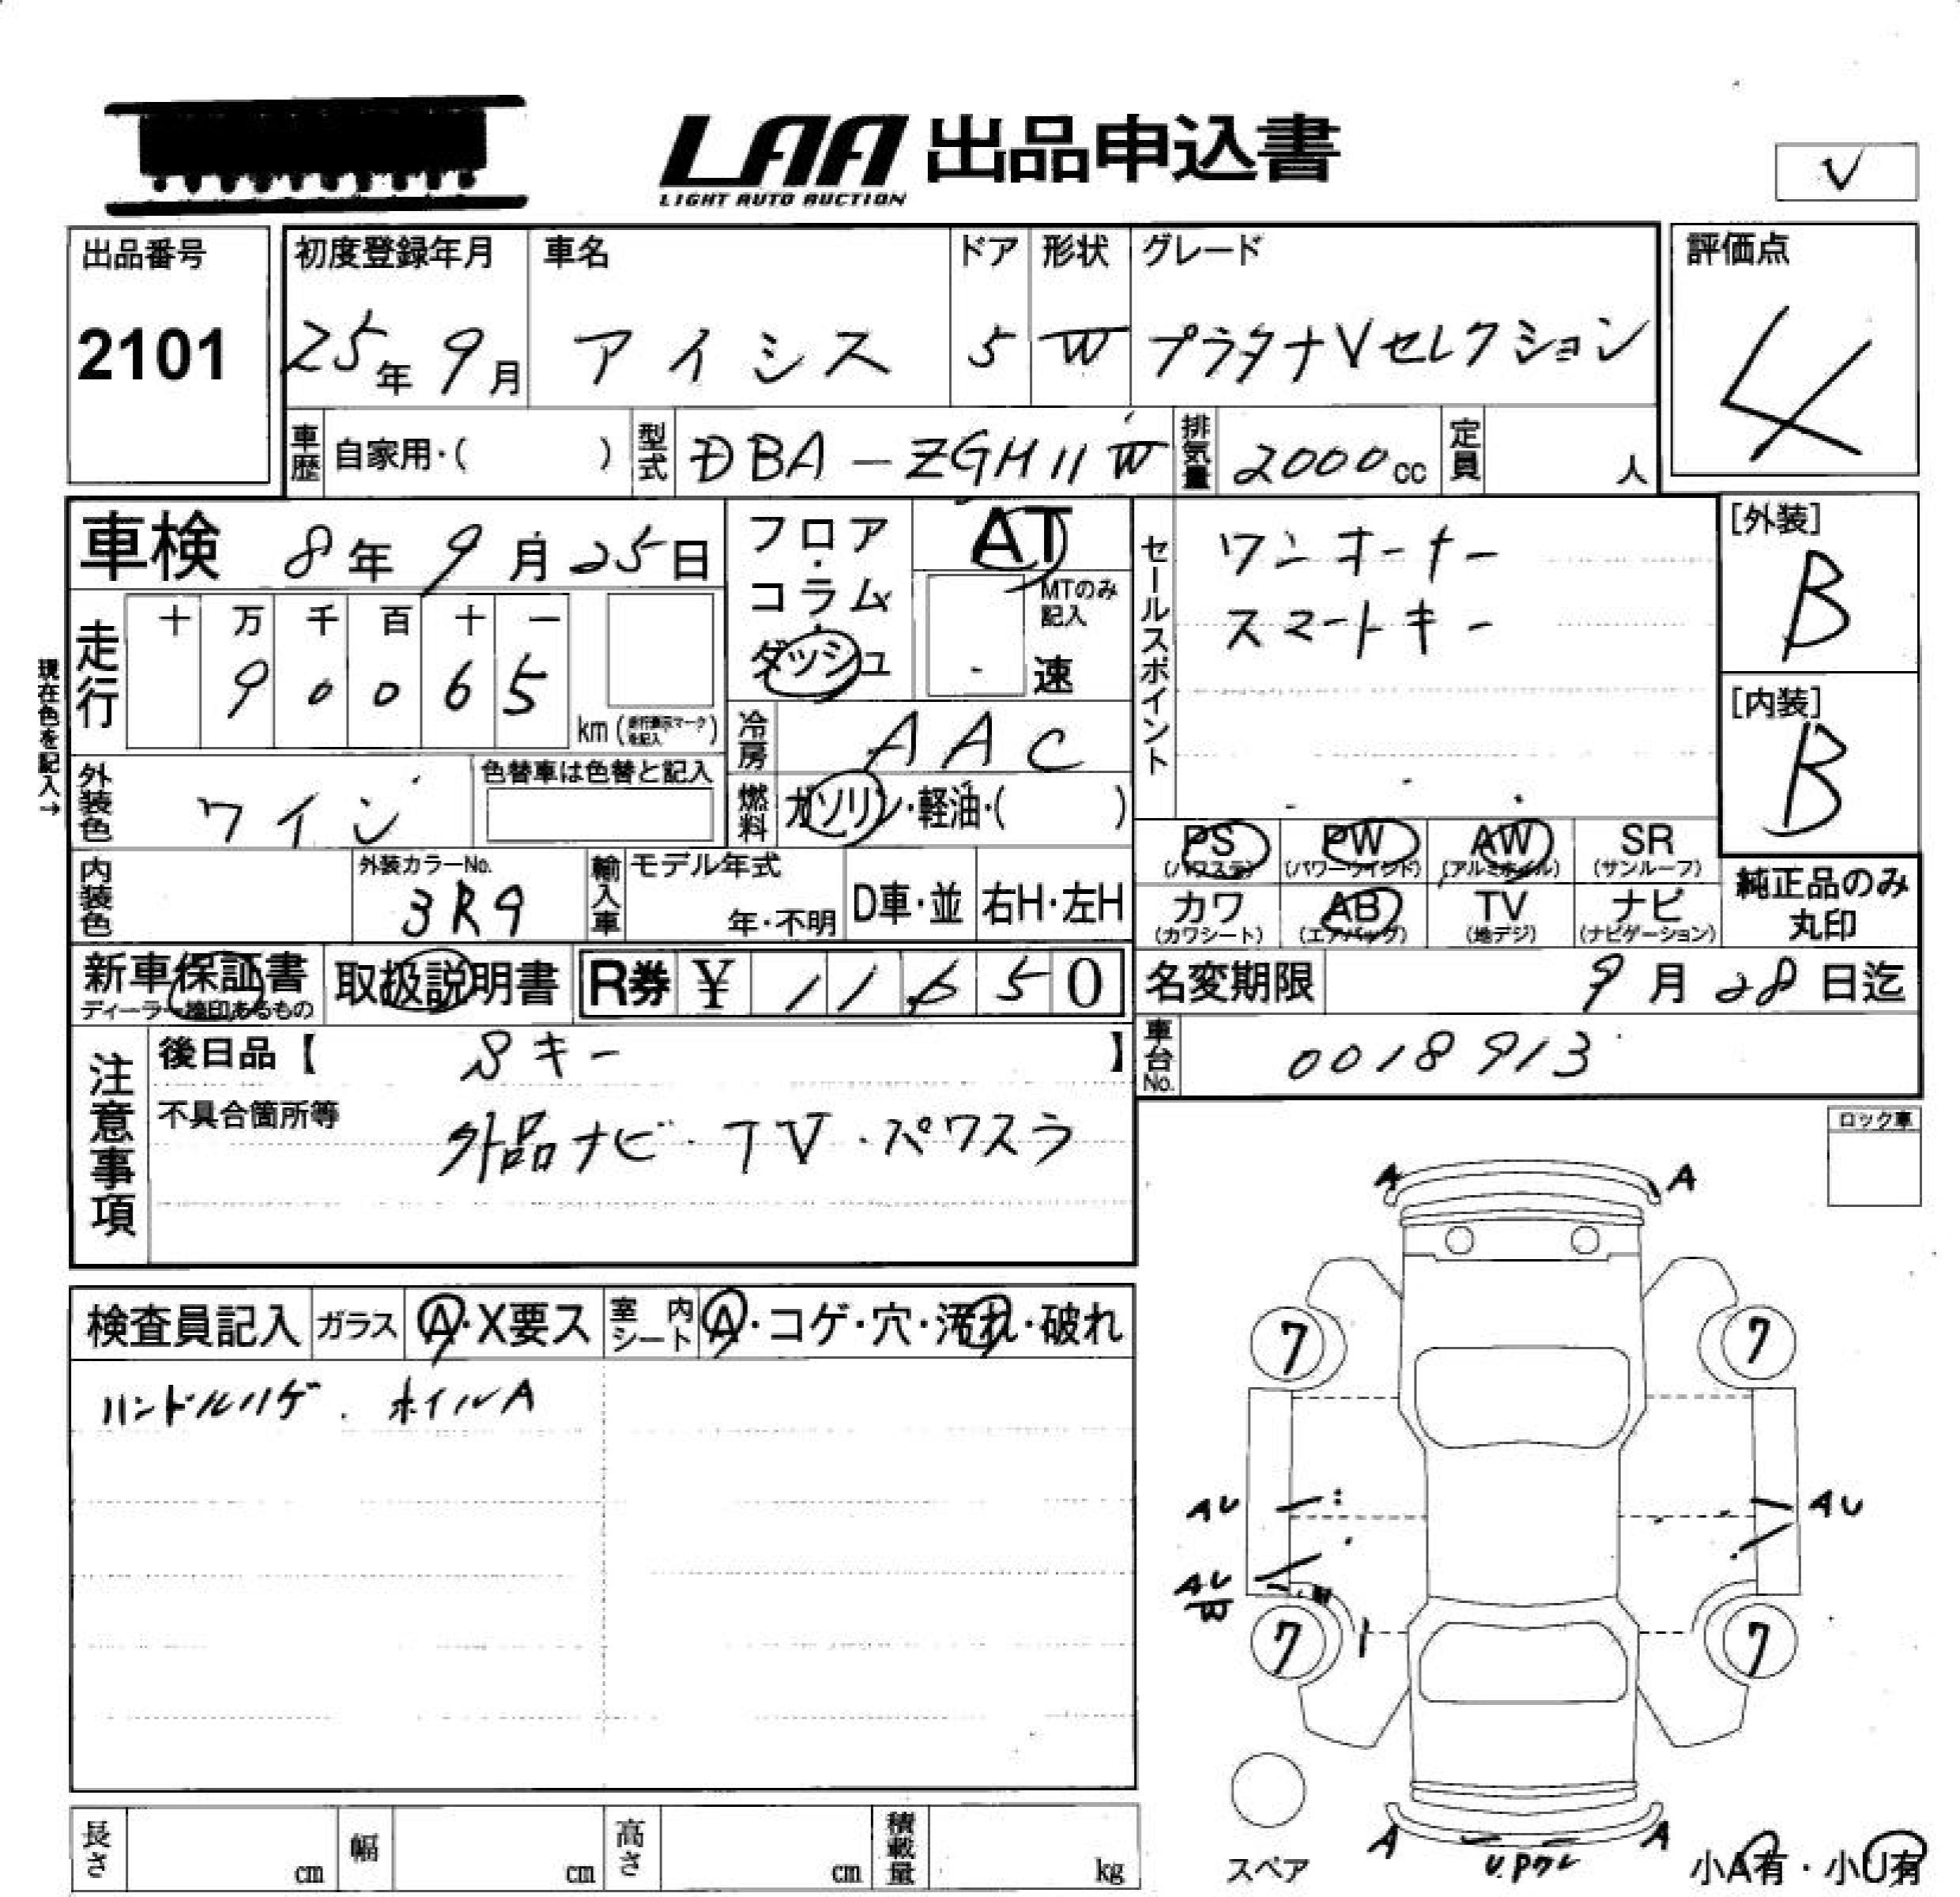 LAA 出品申込書
LIGHT AUTO AUCTION
V
出品番号
2101
初度登録年月
25年 9月
車名
アイシス
ドア
5
形状
W
グレード
プラタナVセレクション
評価点
4
車歴 自家用・( )
型式 DBA-ZGM11W
排気量 2000cc
定員 人
車検 8年 9月 25日
フロア・コラム・ダッシュ
AT
MTのみ記入
速
セールスポイント
ワンオーナー
スマートキー
[外装]
B
[内装]
B
現在色を記入→
走行
十 万 千 百 十 一
9 0 0 6 5
km (走行表示マークを記入)
冷房 AAC
外装色 ワイン
色替車は色替と記入
燃料 ガソリン・軽油・( )
PS (パワステ)
PW (パワーウインド)
AW (アルミホイル)
SR (サンルーフ)
カワ (カワシート)
AB (エアバッグ)
TV (地デジ)
ナビ (ナビゲーション)
純正品のみ
丸印
内装色
外装カラーNo.
3R9
輸入車
モデル年式
年・不明
D車・並
右H・左H
新車保証書
ディーラー捺印あるもの
取扱説明書
R券 ¥ 11,650
名変期限 9月 28日迄
車台No. 0018913
注意事項
後日品【 Sキー 】
不具合箇所等
外品ナビ・TV・パワスラ
ロック車
検査員記入
ガラス A・X要ス
室内シート A・コゲ・穴・汚れ・破れ
ハンドルハゲ . ホイルA
A A
7 7
AU AU
AU
W
7 7
A A
スペア
小A有・小U有
長さ cm
幅 cm
高さ cm
積載量 kg